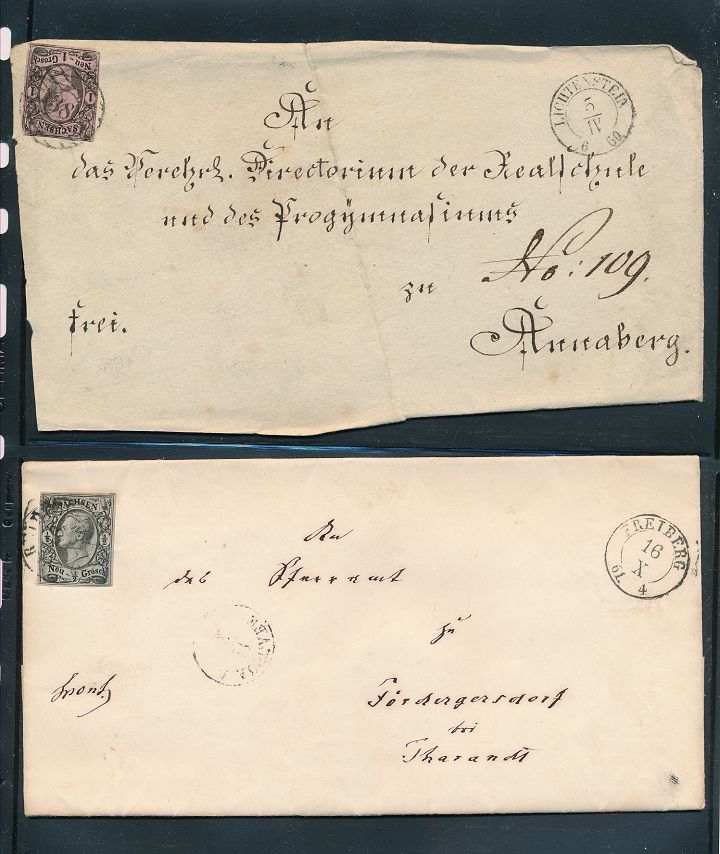 Neu-1 Grosch
1
1
SACHSEN
LICHTENSTEIN
5
IV
6
60
An
das Verehrl. Directorium der Realschule
und des Progÿmnasiums
No: 109.
zu
frei.
Annaberg.
SACHSEN
½
½
Neu-½-Grosch
FREIBERG
16
X
4
An
das Pfarramt
zu
Fördergersdorf
bei
Tharandt